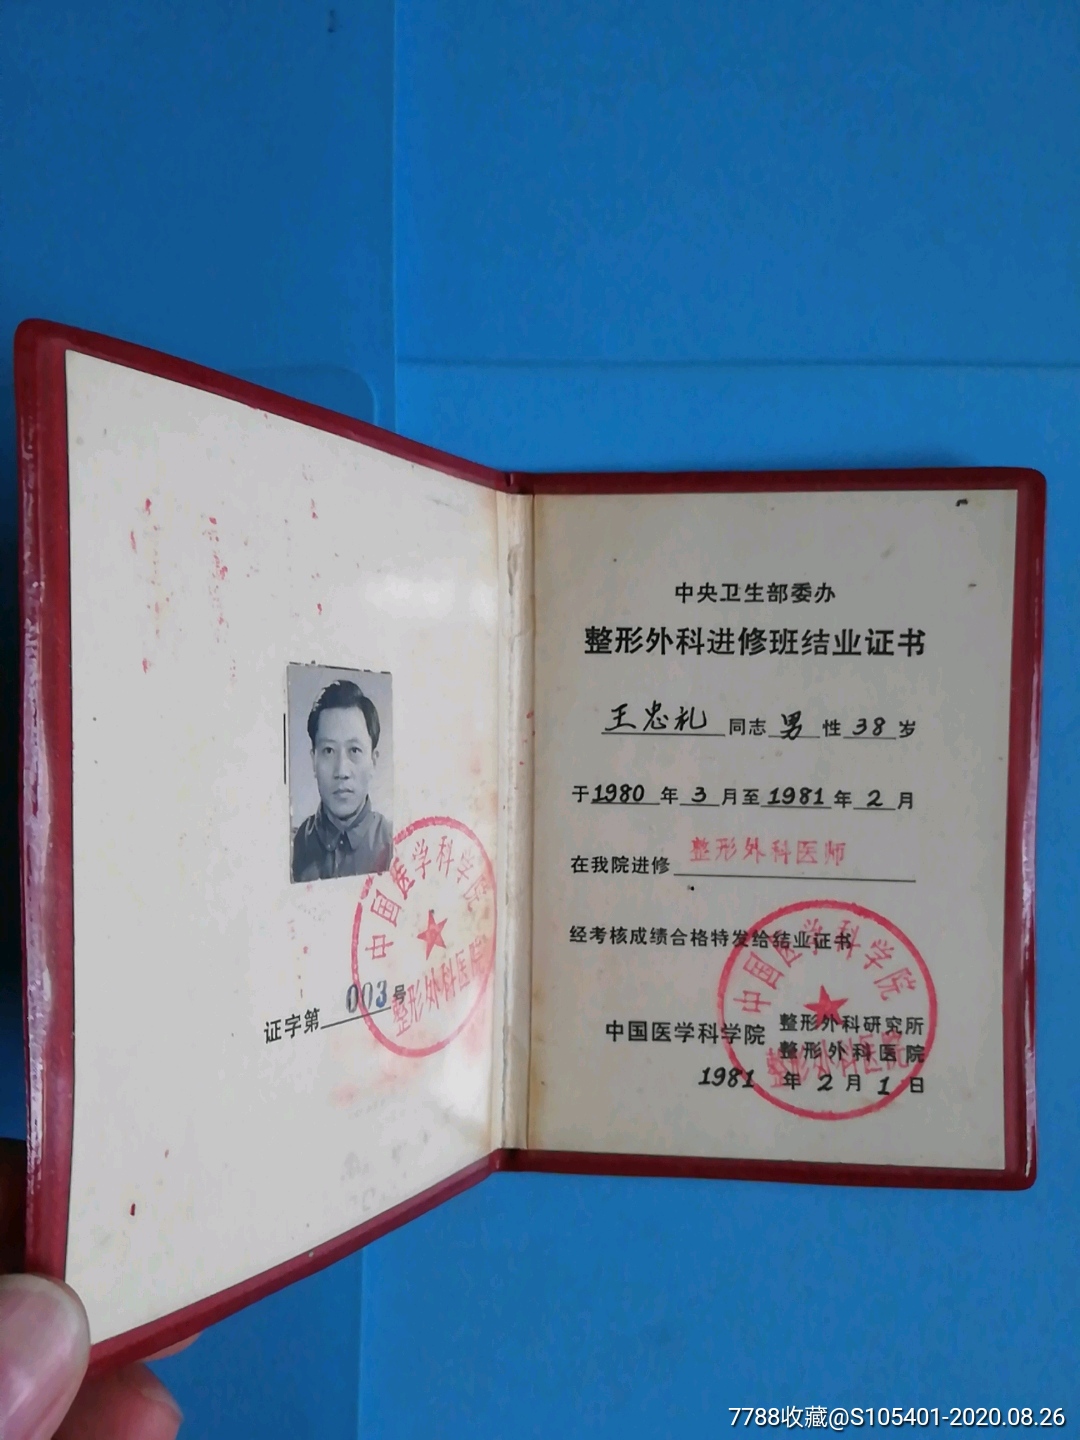 中国医学科学院
整形外科医院
证字第003号
中央卫生部委办
整形外科进修班结业证书
王忠礼同志男性38岁
于1980年3月至1981年2月
在我院进修整形外科医师
经考核成绩合格特发给结业证书
中国医学科学院
整形外科研究所
整形外科医院
1981年2月1日
中国医学科学院
整形外科医院
7788收藏@S105401-2020.08.26